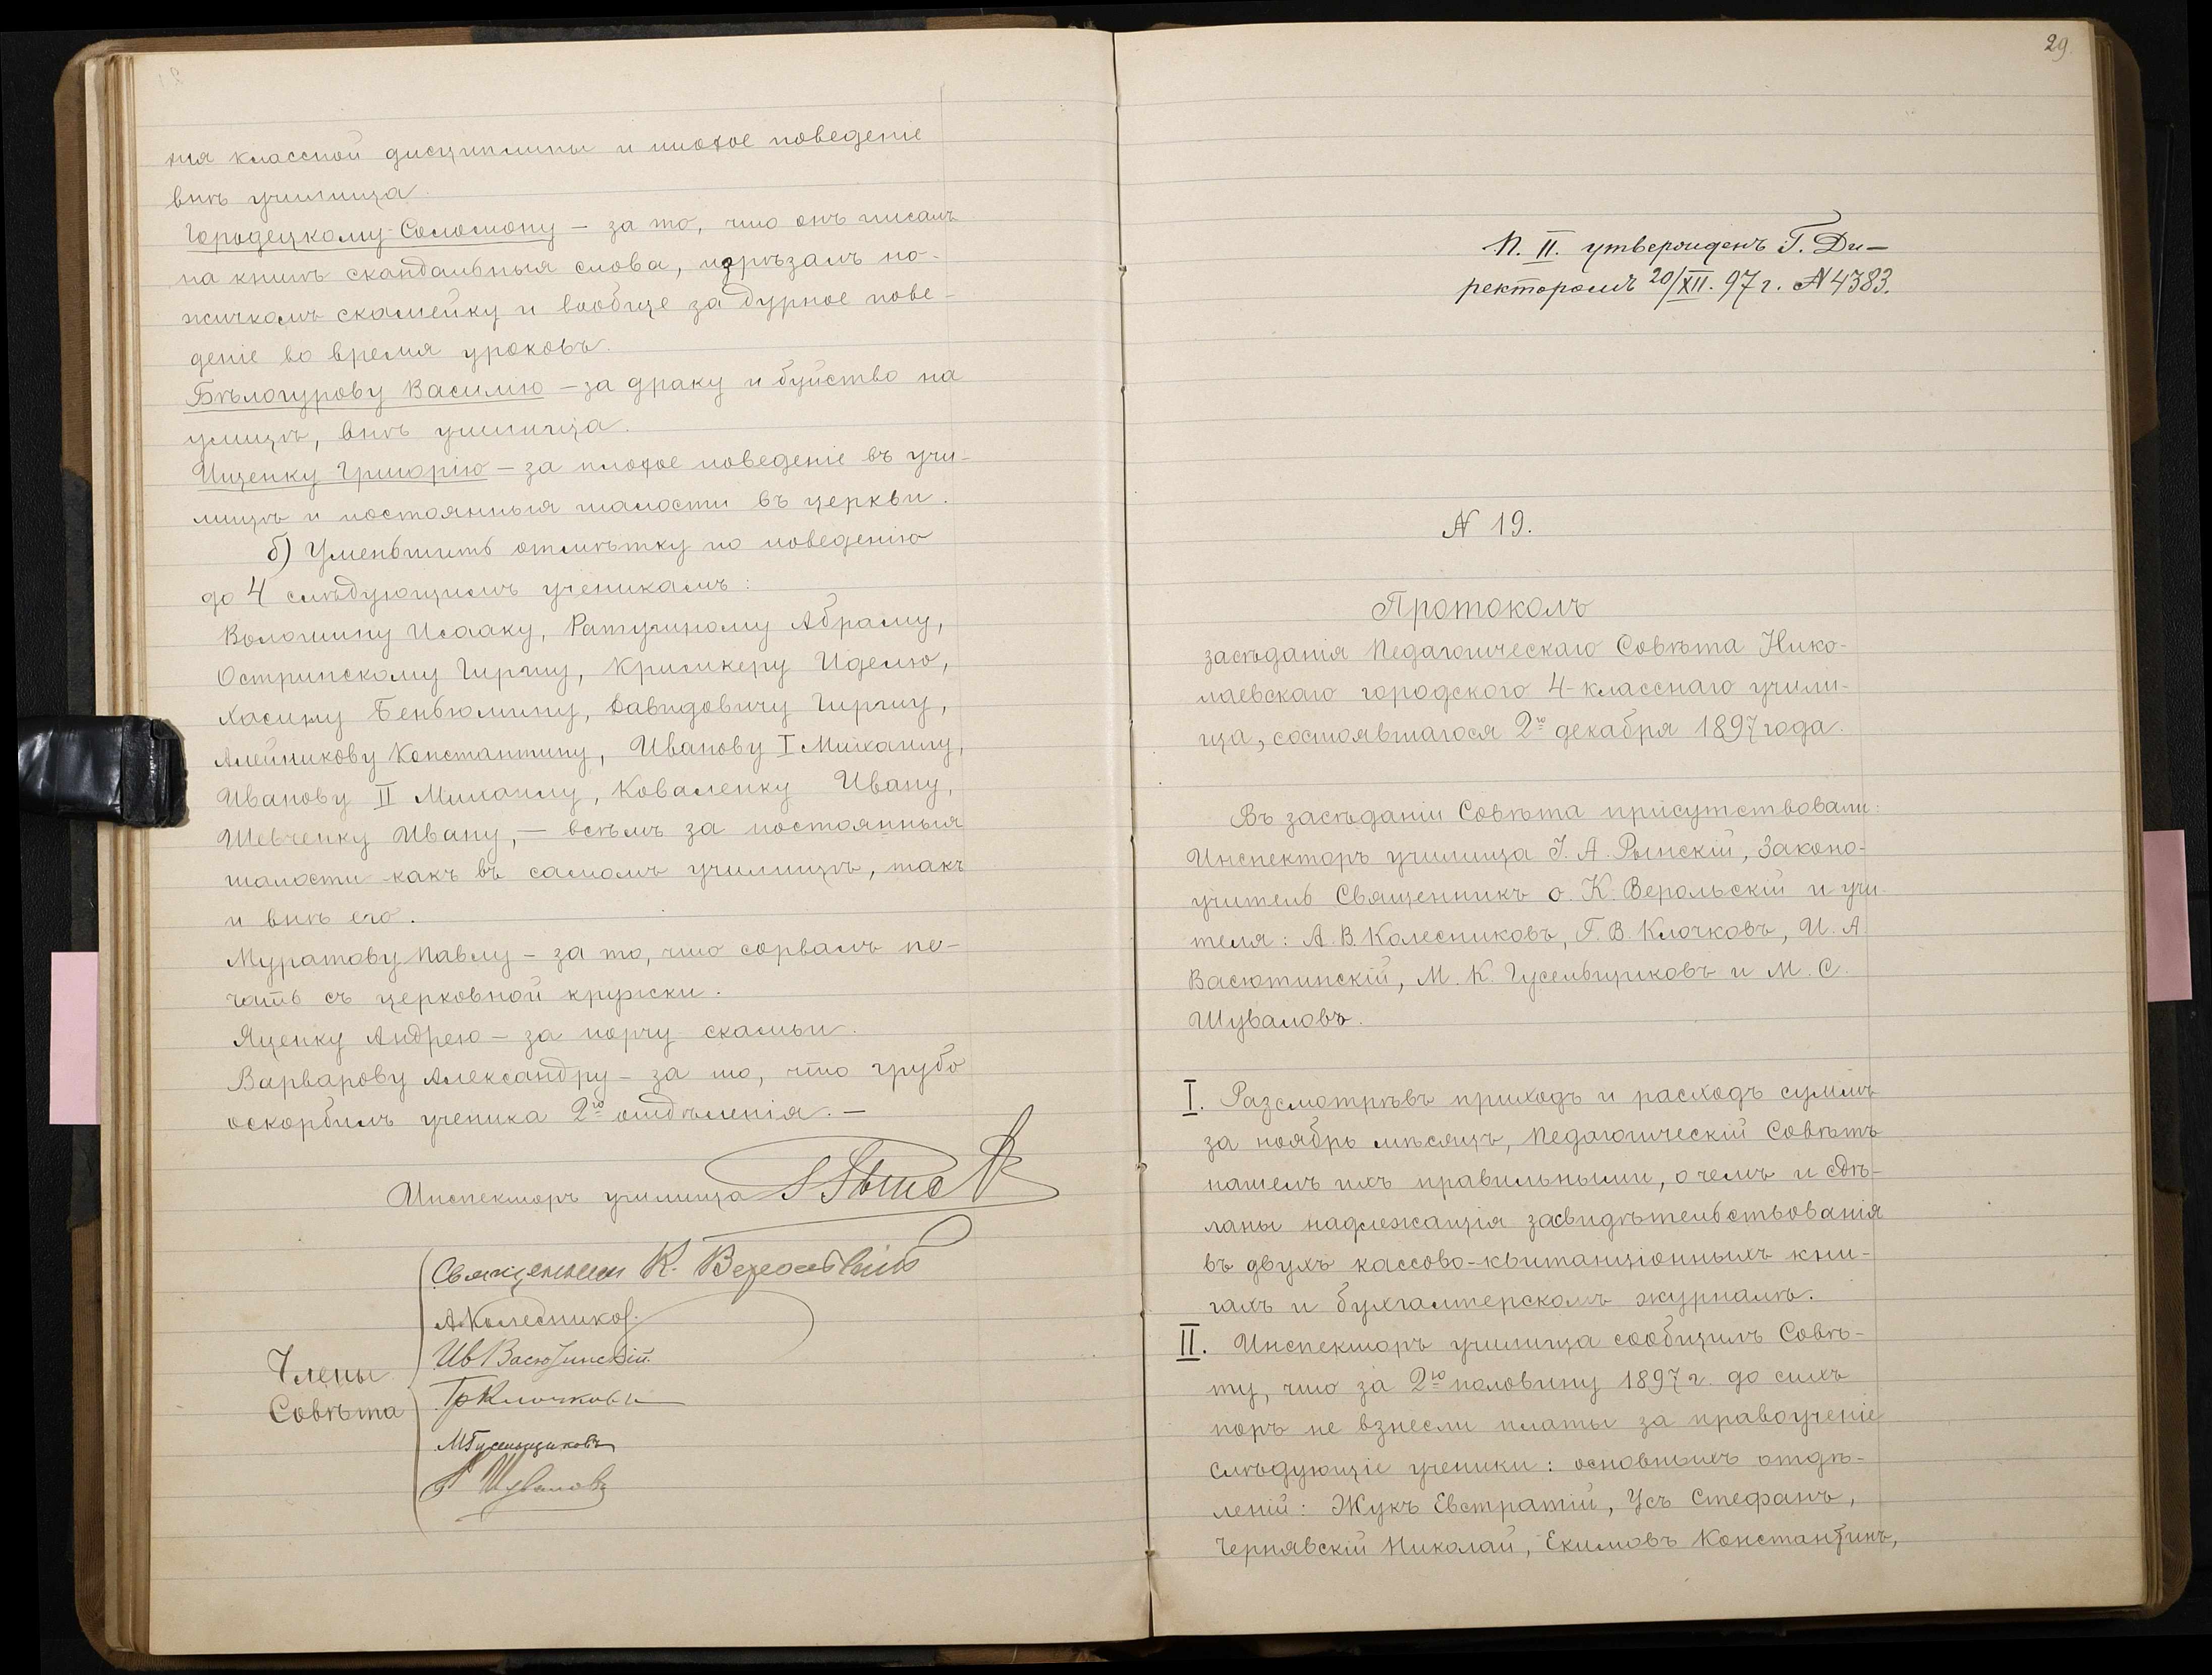 нія классной дисциплины и плохое поведеніе
внѣ училища.
Городецкому Соломону – за то, что онъ писалъ
на книгѣ скандальныя слова, изрѣзалъ но-
жичкомъ скамейку и вообще за дурное пове-
деніе во время уроковъ.
Бѣлогурову Василію – за драку и буйство на
улицѣ, внѣ училища.
Ищенку Григорію – за плохое поведеніе въ учи-
лищѣ и постоянныя шалости въ церкви.
б) Уменьшить отмѣтку по поведенію
до 4 слѣдующимъ ученикамъ:
Волошину Исааку, Ратушному Абраму,
Остринскому Гиршу, Кригикеру Иделю,
Хасину Беньюмину, Давидовичу Гиршу,
Алейникову Константину, Иванову I Михаилу,
Иванову II Михаилу, Коваленку Ивану,
Шевченку Ивану, – всѣмъ за постоянныя
шалости какъ въ самомъ училищѣ, такъ
и внѣ его.
Муратову Павлу – за то, что сорвалъ пе-
чать съ церковной кружки.
Яценку Андрею – за порчу скамьи.
Варварову Александру – за то, что грубо
оскорбилъ ученика 2го отдѣленія. –
Инспекторъ училища
Священникъ К. Верольскій
А. Колесников.
Ив Васютинскій
Члены
Гр Клочковъ
Совѣта
М Гусельщиковъ
Шуваловъ
29.
П. II. утвержденъ Г. Ди-
ректоромъ 20/XII. 97 г. № 4383.
№ 19.
Протоколъ
засѣданія Педагогическаго Совѣта Нико-
лаевскаго городского 4-класснаго учили-
ща, состоявшагося 2го декабря 1897 года.
Въ засѣданіи Совѣта присутствовали:
Инспекторъ училища І. А. Рынскій, Законо-
учитель Священникъ о. К. Верольскій и учи-
теля: А. В. Колесниковъ, Г. В. Клочковъ, И. А.
Васютинскій, М. К. Гусельщиковъ и М. С.
Шуваловъ.
I. Разсмотрѣвъ приходъ и расходъ суммъ
за ноябрь мѣсяцъ, Педагогическій Совѣтъ
нашелъ ихъ правильными, о чемъ и сдѣ-
ланы надлежащія засвидѣтельствованія
въ двухъ кассово-квитанціонныхъ кни-
гахъ и бухгалтерскомъ журналѣ.
II. Инспекторъ училища сообщилъ Совѣ-
ту, что за 2ю половину 1897 г. до сихъ
поръ не взнесли платы за правоученіе
слѣдующіе ученики: основныхъ отдѣ-
леній: Жукъ Евстратій, Усъ Стефанъ,
Чернявскій Николай, Екимовъ Константинъ,